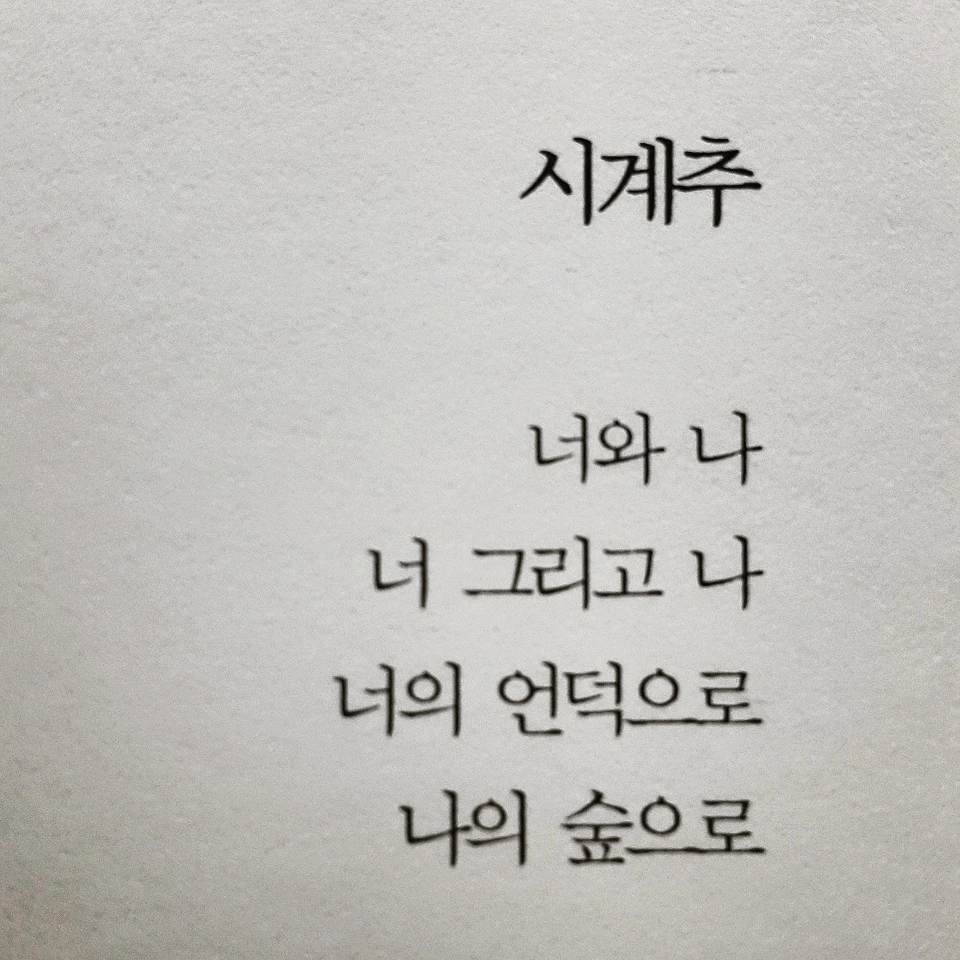 시계추
너와 나
너 그리고 나
너의 언덕으로
나의 숲으로